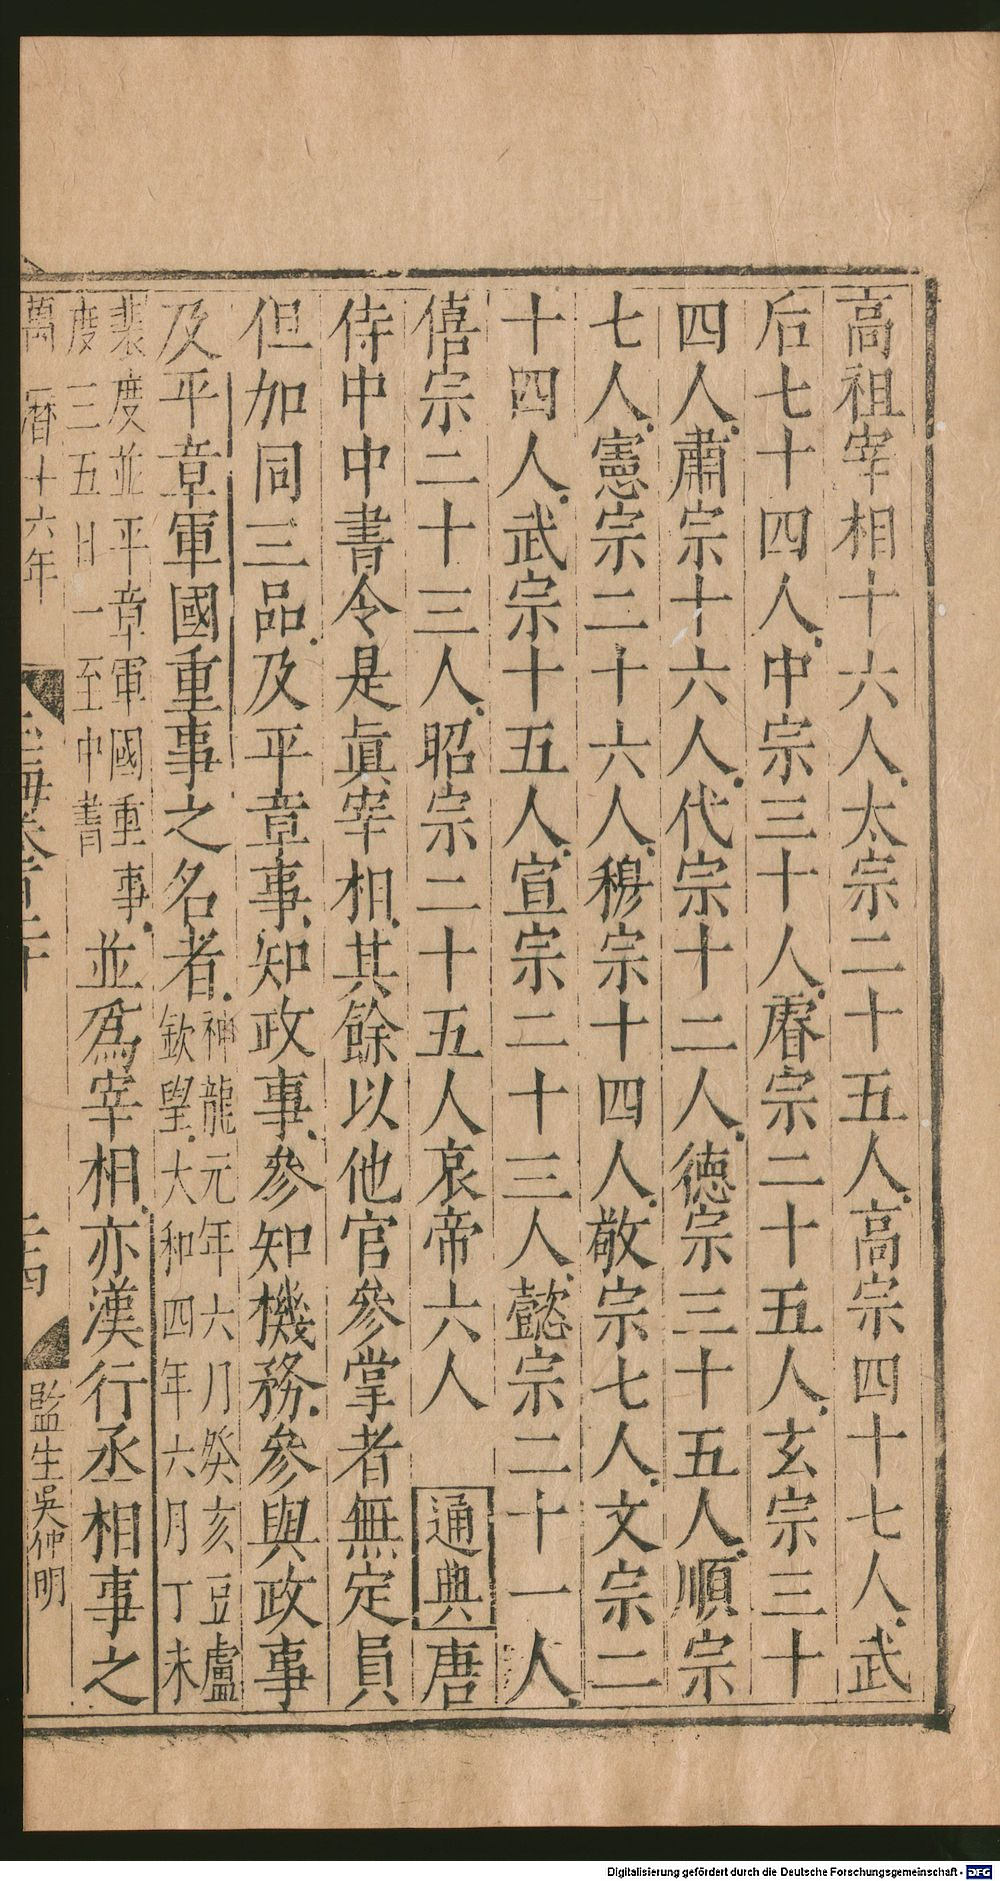 高祖宰相十六人太宗二十五人高宗四十七人武
后七十四人中宗三十人睿宗二十五人玄宗三十
四人肅宗十六人代宗十二人德宗三十五人順宗
七人憲宗二十六人穆宗十四人敬宗七人文宗二
十四人武宗十五人宣宗二十三人懿宗二十一人
僖宗二十三人昭宗二十五人哀帝六人 通典 唐
侍中中書令是眞宰相其餘以他官參掌者無定員
但加同三品及平章事知政事參知機務參與政事
及平章軍國重事之名者神龍元年六月癸亥豆盧
欽望大和四年六月丁未
裴度並平章軍國重事
度三五日一至中書
並爲宰相亦漢行丞相事之
萬曆十六年
玉海卷百二十
監生吳仲明
Digitalisierung gefördert durch die Deutsche Forschungsgemeinschaft - DFG